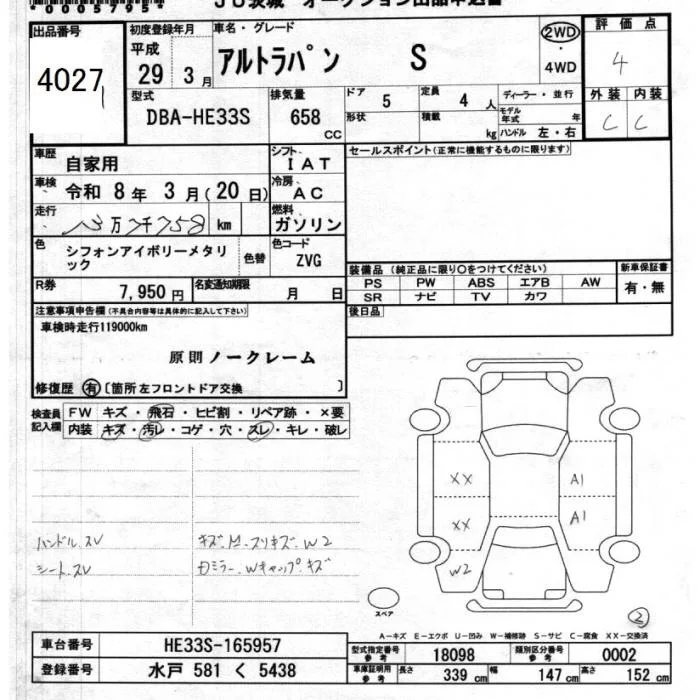 出品番号
4027
初度登録年月
平成
29 3月
車名・グレード
アルトラパン S
2WD
・
4WD
評価点
4
外装 内装
C C
型式
DBA-HE33S
排気量
658
CC
ドア
5
定員
4 人
形状
積載
kg
ディーラー・並行
モデル年式 年
ハンドル 左・右
車歴
自家用
シフト
IAT
セールスポイント(正常に機能するものに限ります)
車検
令和 8年 3月(20日)
冷房
AC
走行
km
燃料
ガソリン
色
シフォンアイボリーメタリ
ック
色替
色コード
ZVG
装備品 (純正品に限り〇をつけてください)
PS PW ABS エアB AW
SR ナビ TV カワ
新車保証書
有・無
R券
7,950円
名変通知期限
月 日
後日品
注意事項申告欄(不具合内容等は具体的に記入して下さい)
車検時走行119000km
原則 ノークレーム
修復歴 有 〔箇所 左フロントドア交換 〕
検査員
記入欄
FW キズ・飛石・ヒビ割・リペア跡・×要
内装 キズ・汚レ・コゲ・穴・スレ・キレ・破レ
XX A1
XX A1
W2
ハンドル.スレ
シート.スレ
スペア
2
A-キズ E-エクボ U-凹み W-補修跡 S-サビ C-腐食 XX-交換済
車台番号
HE33S-165957
登録番号
水戸 581 く 5438
型式指定番号
参考
18098
類別区分番号
参考
0002
車庫証明用
参考
長さ 339 cm 幅 147 cm 高さ 152 cm